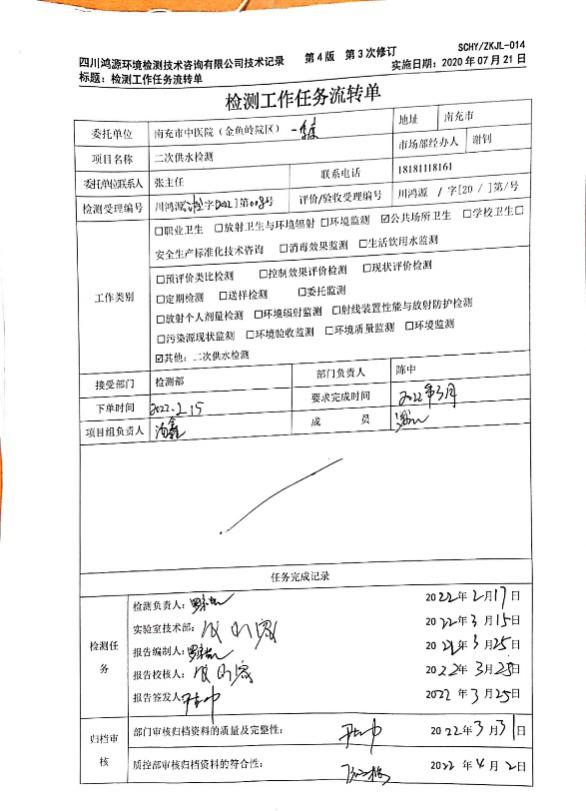 四川鸿源环境检测技术咨询有限公司技术记录 第4版 第3次修订 SCHY/ZKJL-014
标题：检测工作任务流转单 实施日期：2020年07月21日
检测工作任务流转单
委托单位 南充市中医院（金鱼岭院区） 地址 南充市
项目名称 二次供水检测 市场部经办人 谢钊
委托单位联系人 张主任 联系电话 18181118161
检测受理编号 川鸿源 字 第 号 评价/验收受理编号 川鸿源 / 字[20 / ]第/号
工作类别
□职业卫生 □放射卫生与环境辐射 □环境监测 ☑公共场所卫生 □学校卫生□
安全生产标准化技术咨询 □消毒效果监测 □生活饮用水监测
□预评价类比检测 □控制效果评价检测 □现状评价检测
□定期检测 □送样检测 □委托监测
□放射个人剂量检测 □环境辐射监测 □射线装置性能与放射防护检测
□污染源现状监测 □环境验收监测 □环境质量监测 □环境监测
☑其他：二次供水检测
接受部门 检测部 部门负责人 陈中
下单时间 2022.2.15 要求完成时间 2022年3月
项目组负责人 汤鑫 成 员
任务完成记录
检测任务
检测负责人： 2022年2月17日
实验室技术部： 2022年3月15日
报告编制人： 2022年3月25日
报告校核人： 2022年3月25日
报告签发人： 2022年3月25日
归档审核
部门审核归档资料的质量及完整性： 2022年3月31日
质控部审核归档资料的符合性： 2022年4月2日